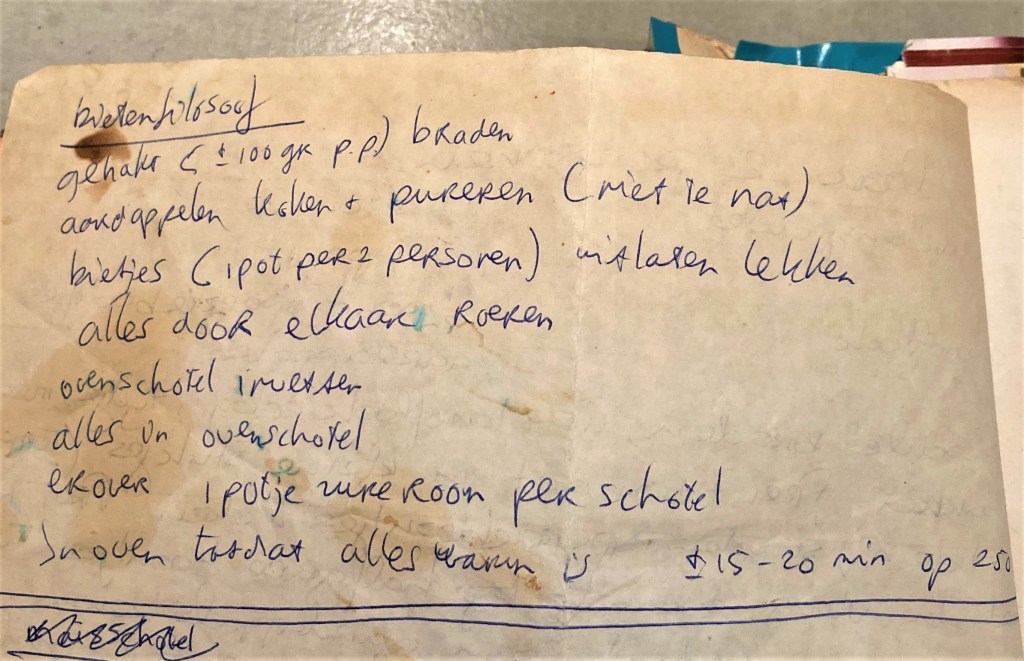 bietenfilosoof
gehakt (± 100 gr p.p.) braden
aardappelen koken + pureren (niet te nat)
bietjes (1 pot per 2 personen) uitlaten lekken
alles door elkaar roeren
ovenschotel invetten
alles in ovenschotel
erover 1 potje zure room per schotel
In oven totdat alles warm is ± 15-20 min op 250